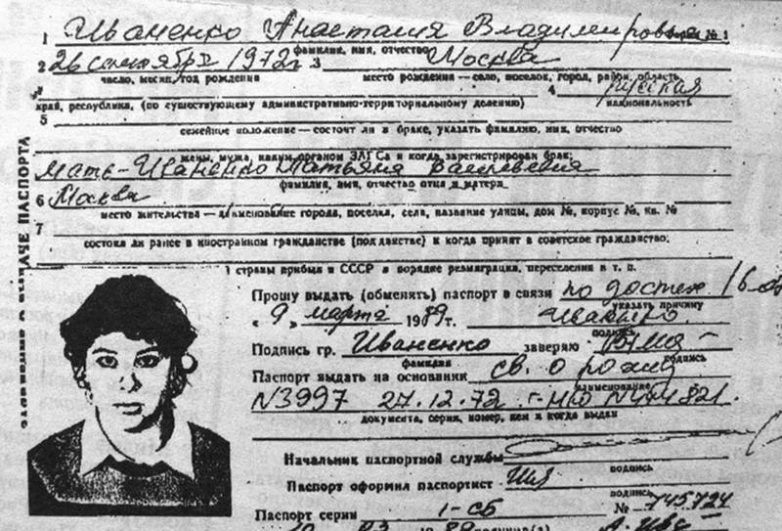 1 Иваненко Анастасия Владимировна
фамилия, имя, отчество
2 26 сентября 1972г. 3 Москва
число, месяц, год рождения место рождения — село, поселок, город, район, область,
4 русская
край, республика, (по существующему административно-территориальному делению) национальность
5
семейное положение — состоит ли в браке, указать фамилию, имя, отчество
жены, мужа, каким органом ЗАГСа и когда зарегистрирован брак;
мать - Иваненко Татьяна Васильевна
фамилия, имя, отчество отца и матери
6 Москва
место жительства — наименование города, поселка, села, название улицы, дом №, корпус №, кв. №
7
состоял ли ранее в иностранном гражданстве (подданстве) и когда принят в советское гражданство;
страны прибыл в СССР в порядке реэмиграции, переселения и т. п.
Прошу выдать (обменять) паспорт в связи по достиж 16
указать причину
« 9 » марта 1989г. Иваненко
подпись
Подпись гр. Иваненко заверяю
фамилия подпись
Паспорт выдать на основании св. о рожд
наименование
N3997 27.12.72
документа, серия, номер, кем и когда выдан
Начальник паспортной службы
подпись
Паспорт оформил паспортист
подпись
Паспорт серии I-СБ № 745724